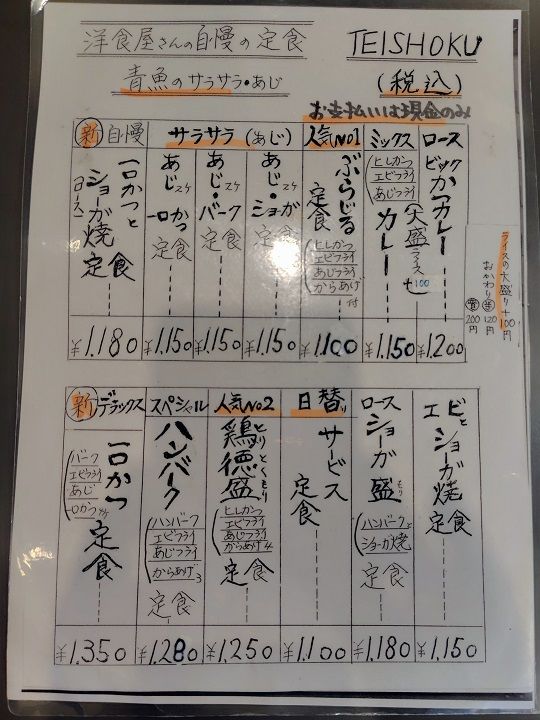 洋食屋さんの自慢の定食
TEISHOKU
青魚のサラサラ・あじ
(税込)
お支払いは現金のみ
ロース
ビックかつカレー
(大盛)ライス
+100
¥1.200
ミックス
(ヒレかつ
エビフライ
あじフライ
カレー
¥1.150
人気No1
ぶらじる
定食
(ヒレかつ
エビフライ
あじフライ
からあげ
付
¥1.100
サラサラ(あじ)
あじ2ヶ・ショーガ
定食
¥1.150
あじ2ヶ・バーク
定食
¥1.150
あじ2ヶ・一口かつ
定食
¥1.150
新自慢
一口かつと
(ロース)ショーガ焼
定食
¥1.180
ライスの大盛り+100円
おかわり
120円
200円
エビとショーガ焼
定食
¥1.150
ロース
ショーガ盛
もり
(ハンバーグと
ショーガ焼
定食
¥1.180
日替り
サービス
定食
¥1.100
人気No2
鶏徳盛
とりとくもり
(ヒレかつ
エビフライ
あじフライ
からあげ4
定食
¥1.250
スペシャル
ハンバーク
(ハンバーク
エビフライ
あじフライ
からあげ3
定食
¥1.280
新デラックス
一口かつ
(バーク
エビフライ
あじ
一口かつ付
定食
¥1.350